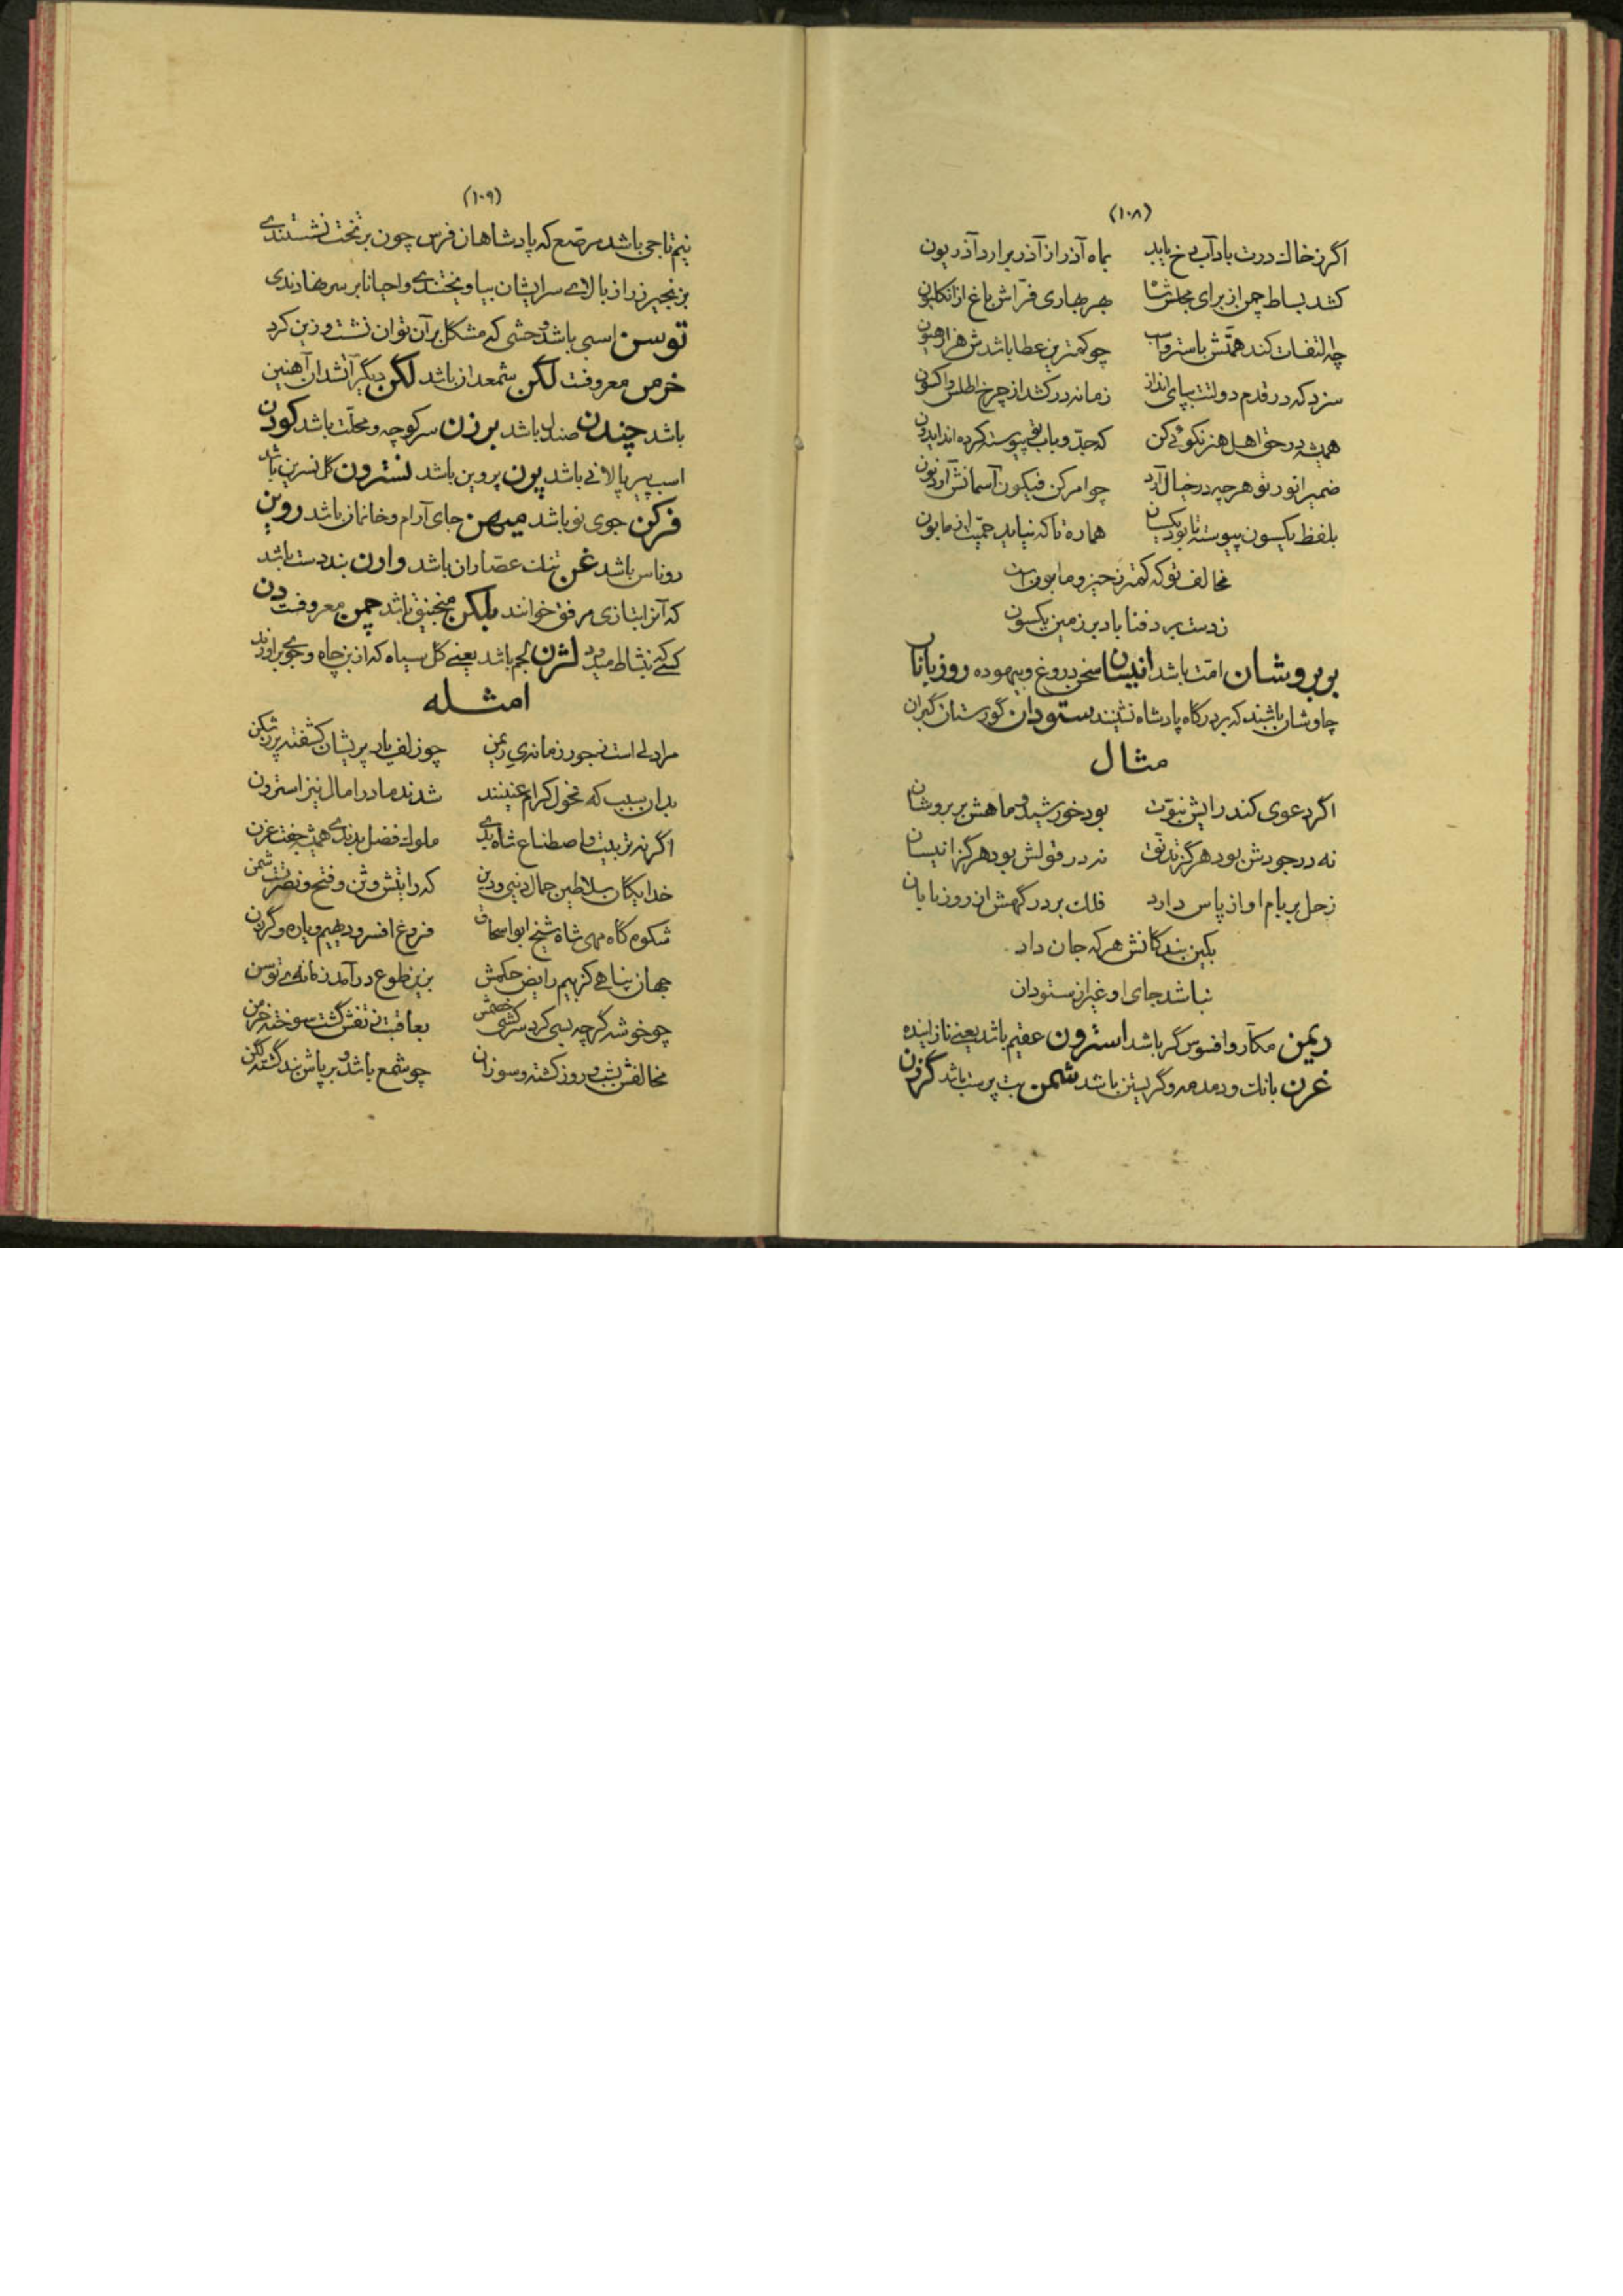 (۱۰۸)
اگر ز خاک درت باد آب رخ یابد بماه آذر از آذر برارد آذریون
کشد بساط چمن از برای مجلس شاه بهر بهاری فراش باغ از انکلیون
چه التفات کند همتش باستر و اسب چو کمترین عطا باشدش هزار هیون
سزد که در قدم دولتت بپای انداز زمانه در کشد از چرخ اطلس و اکسون
همیشه در حق اهل هنر نکوئی کن که جد و باب تو پیوسته کرده اند ایدون
ضمیر انور تو هر چه در خیال آرد چو امر کن فیکون آسمانش آرد نون
بلفظ یکسون پیوسته تا بود یکسان هماره تا که نیاید حمیت از مابون
مخالف تو که کمتر ز حیز و مابون است
ز دست برد فنا باد بر زمین یکسون
بربروشان امت باشد انیسان سخن دروغ و بیهوده روزبانان
چاوشان باشند که بر درگاه پادشاه نشینند ستودان گورستان گبران
مثال
اگر دعوی کند رایش نبوت بود خورشید و ماهش بربروشان
نه در جودش بود هرگز ندقت نه در قولش بود هرگز انیسان
زحل بر بام او از پاس دارد فلک بر درگهش از روزبانان
بکین بندگانش هر که جان داد
نباشد جای او غیر از ستودان
ریمن مکار و افسوس گر باشد استرون عقیم باشد یعنی نازاینده
غرن بانک و دمدمه و گریستن باشد شمن بت پرست باشد گرزن
(۱۰۹)
نیم تاجی باشد مرصع که پادشاهان فرس چون بر تخت نشستندی
بزنجیر زر از بالای سر ایشان بیاویختندی و احیانا بر سر نهادندی
توسن اسبی باشد وحشی که مشکل بر آن توان نشست و زین کرد
خرمن معروفست لگن شمعدان باشد لگن دیگر آتشدان آهنین
باشد چندن صندل باشد برزن سر کوچه و محلت باشد کودن
اسب پیر پالانی باشد پون پروین باشد نسترون گل نسرین باشد
فرکن جوی نو باشد میهن جای آرام و خانمان باشد روین
روناس باشد غن تنک عصاران باشد وارن بند دست باشد
که آنرا بتازی مرفق خوانند بلکن منجنیق باشد چمن معروفست دن
کسی که بنشاط میدود لژن لجم باشد یعنی گل سیاه که از بن چاه و جوی برآورند
امثله
مرا دلی است ز جور زمانه‌ی ریمن چو زلف یار پریشان کشفته پر ز شکن
بدان سبب که فحول کرام عنینند شدند مادر امال نیز استرون
اگر نه تربیت و اصطناع شاه بدی ملوک فضل بدندی همیشه جفت غرن
خدایگان سلاطین جمال دنیی و دین که رایتش وثن و فتح و نصرتست شمن
شکوه گاه مهی شاه شیخ ابو اسحاق فروغ افسر و دیهیم و یاره و گرزن
جهان پناهی کز بیم رایض حکمش بزین طوع در آمد زمانه‌ی توسن
چو خوشه گر چه بسی کرد سرکشی خصمش بعاقبت ز تفش گشت سوخته خرمن
مخالفش شب و روز کشته و سوزان چو شمع باشد و بر پاش بند گشته لگن